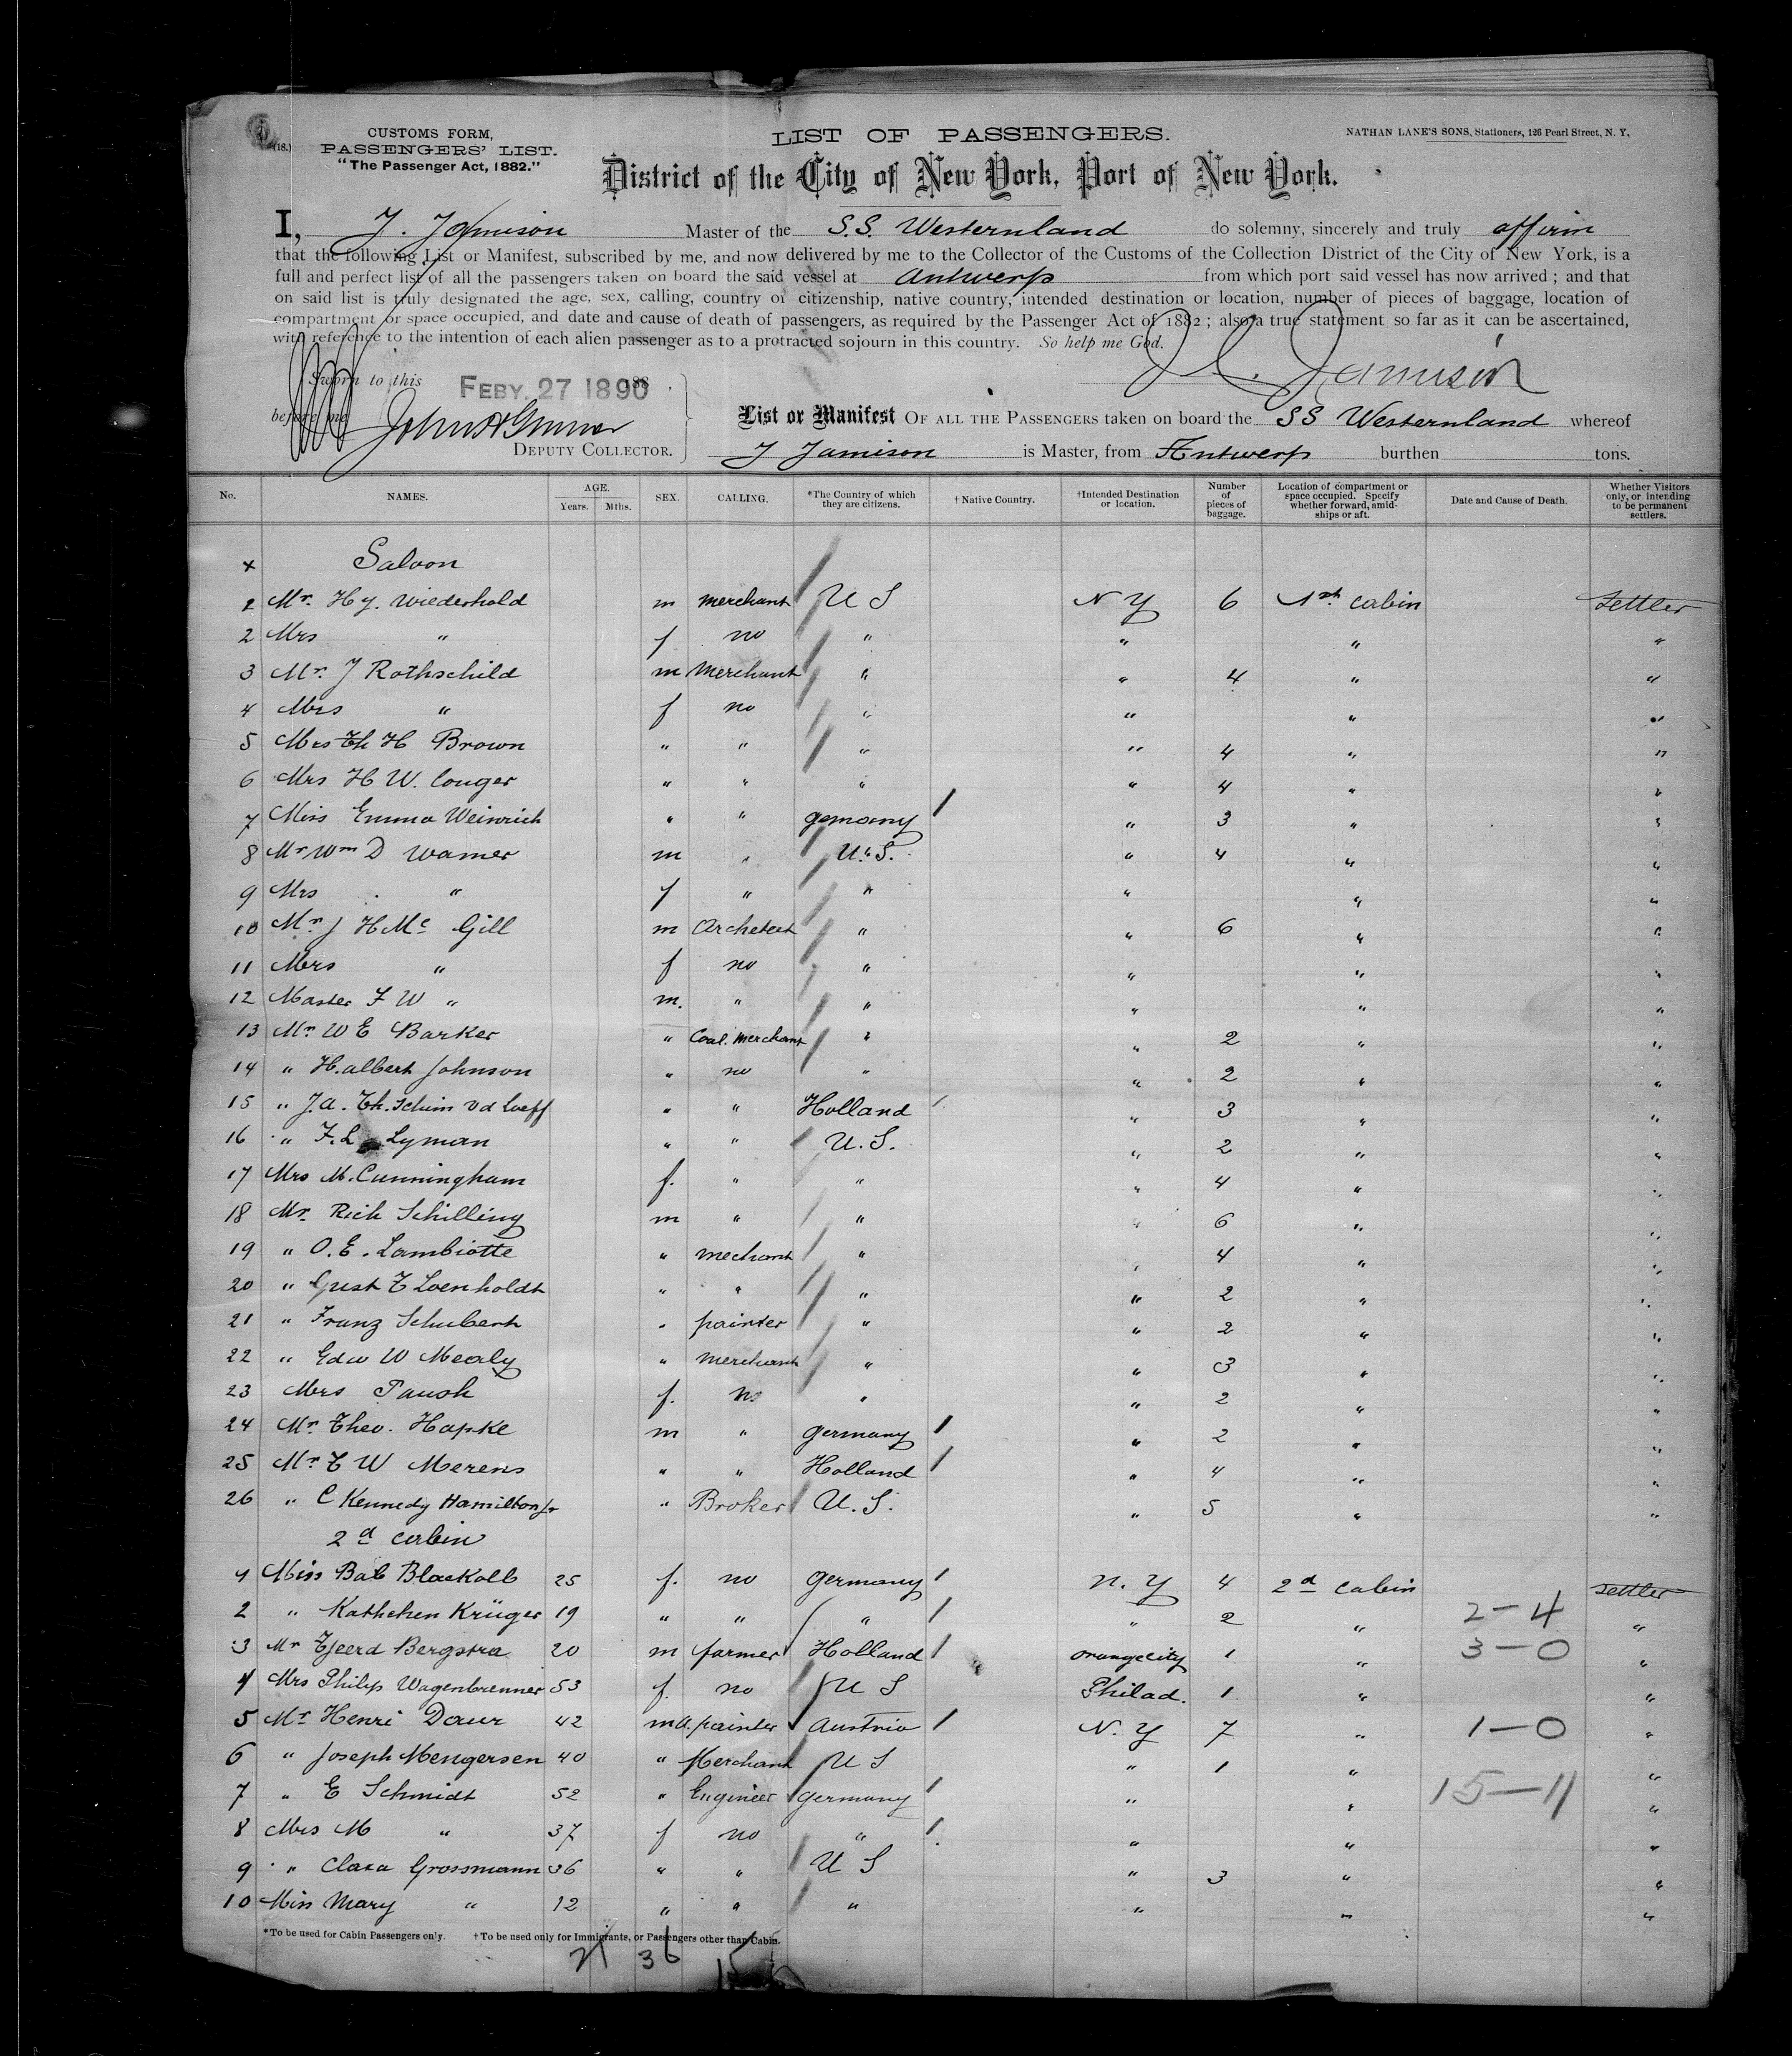 (18.)
CUSTOMS FORM,
PASSENGERS' LIST.
"The Passenger Act, 1882."
LIST OF PASSENGERS.
NATHAN LANE'S SONS, Stationers, 126 Pearl Street, N. Y.
District of the City of New York, Port of New York.
I, J. Jamison Master of the S.S. Westernland do solemny, sincerely and truly affirm
that the following List or Manifest, subscribed by me, and now delivered by me to the Collector of the Customs of the Collection District of the City of New York, is a
full and perfect list of all the passengers taken on board the said vessel at Antwerp from which port said vessel has now arrived ; and that
on said list is truly designated the age, sex, calling, country of citizenship, native country, intended destination or location, number of pieces of baggage, location of
compartment or space occupied, and date and cause of death of passengers, as required by the Passenger Act of 1882 ; also a true statement so far as it can be ascertained,
with reference to the intention of each alien passenger as to a protracted sojourn in this country. So help me God.
Jamison
Sworn to this FEBY. 27 1890 188
before me
DEPUTY COLLECTOR.
List or Manifest OF ALL THE PASSENGERS taken on board the SS Westernland whereof
J Jamison is Master, from Antwerp burthen tons.
No. NAMES. AGE. Years. Mths. SEX. CALLING. *The Country of which they are citizens. † Native Country. †Intended Destination or location. Number of pieces of baggage. Location of compartment or space occupied. Specify whether forward, amidships or aft. Date and Cause of Death. Whether Visitors only, or intending to be permanent settlers.
x Saloon
1 Mr. Hy. Wiederhold m merchant U S N Y 6 1st cabin Settler
2 Mrs " f no " " " "
3 Mr. J Rothschild m Merchant " " 4 " "
4 Mrs " f no " " " "
5 Mrs Th H Brown " " " " 4 " "
6 Mrs H W. Conger " " " " 4 " "
7 Miss Emma Weinrich " " gemany / " 3 " "
8 Mr Wm D Warner m " U.S. " 4 " "
9 Mrs " f " " " " "
10 Mr J H Mc Gill m Architect " " 6 " "
11 Mrs " f no " " " "
12 Master F W " m. " " " " "
13 Mr W E Barker " Coal. Merchant " " 2 " "
14 " H. albert Johnson " no " " 2 " "
15 " J. A. Th. Schim vd Loeff " " Holland / " 3 " "
16 " F. L. Lyman " " U. S. " 2 " "
17 Mrs M. Cunningham f. " " " 4 " "
18 Mr. Rich Schilling m " " " 6 " "
19 " O. E. Lambiotte " mechant " " 4 " "
20 " Gust T Loenholdt " " " " 2 " "
21 " Franz Schubert " painter " " 2 " "
22 " Edw W Mealy " merchant " " 3 " "
23 Mrs f. no " " 2 " "
24 Mr Theo. Hapke m " germany / " 2 " "
25 Mr T W Merens " " Holland / " 4 " "
26 " C Kennedy Hamilton Jr " Broker U. S. " 5 " "
2d cabin
1 Miss Bab 25 f. no Germany / N. Y 4 2d cabin settler
2 " Kathchen Krüger 19 " " " / " 2 " 2 – 4 "
3 Mr Tjeerd Bergstra 20 m farmer Holland / orangecity 1 " 3 – 0 "
4 Mrs Philip Wagenbrenner 53 f. no U S Philad. 1 " "
5 Mr Henri Daur 42 m a. painter Austria / N. Y 7 " 1 – 0 "
6 " Joseph Mengersen 40 " Merchant U S " 1 " "
7 " E Schmidt 52 " Engineer germany / " " 15 – 11 "
8 Mrs M " 37 f no " / " " "
9 " Clara Grossmann 36 " " U S " 3 " "
10 Miss Mary " 12 " " " " " "
*To be used for Cabin Passengers only. †To be used only for Immigrants, or Passengers other than Cabin.
21 36 15